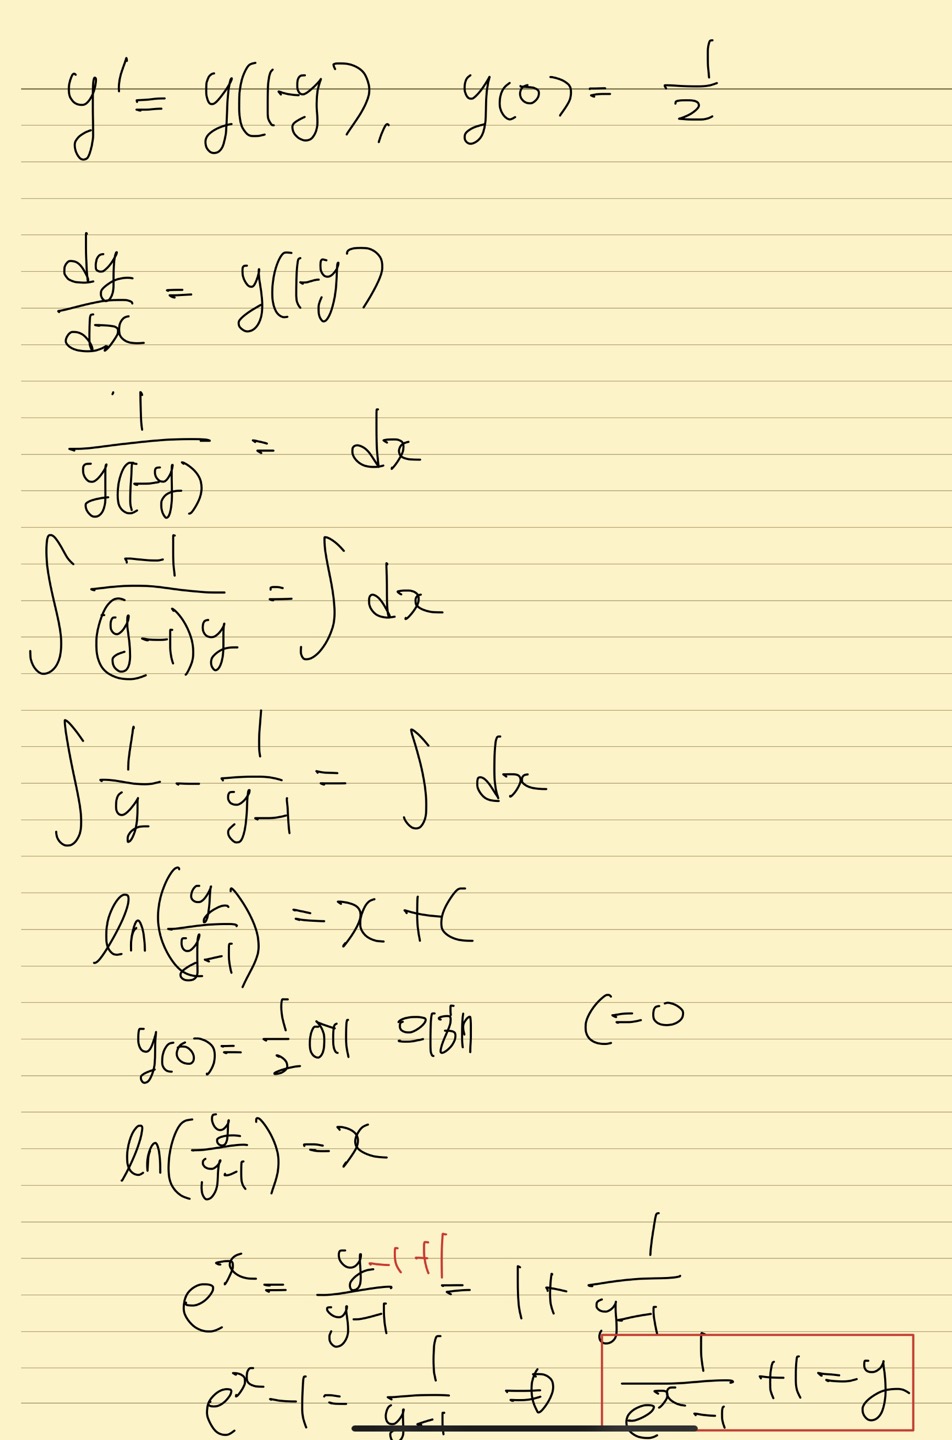 y' = y(1-y), y(0) = 1/2
dy/dx = y(1-y)
1/(y(1-y)) = dx
∫ -1/((y-1)y) = ∫ dx
∫ 1/y - 1/(y-1) = ∫ dx
ln(y/(y-1)) = x + C
y(0) = 1/2 에 의해 C = 0
ln(y/(y-1)) = x
e^x = (y -1 +1)/(y-1) = 1 + 1/(y-1)
e^x - 1 = 1/(y-1) ⇒ 1/(e^x - 1) + 1 = y